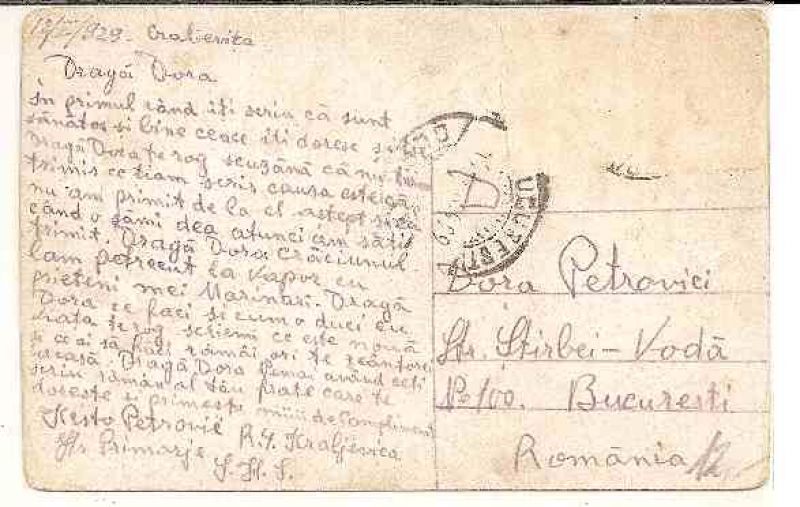 1929. Cralevita
Dragă Dora
În primul rând iti scriu că sunt
sănătos si bine ceace iti doresc si
Dragă Dora te rog scuzănă că nu
trimis ce tiam scris causa esteigă
nu am primit de la el astept si ce
când o sămi dea atunci am săti
trimit. Dragă Dora Crăciunul
lam petrecut la vapor cu
prieteni mei Marinari. Dragă
Dora ce faci si cum o duci cu
te rog schiemi ce este nouă
si ce ai să faci rămâi ori te reântorci
acasă Dragă Dora nemai având ceti
scriu rămân al tău frate care te
doreste si primeste miiii de Compliment
Petrovic R. Y. Kraljevica
Str Primorje
S. H. S.
Dora Petrovici
Str. Stirbei-Vodă
No 100. Bucuresti
România